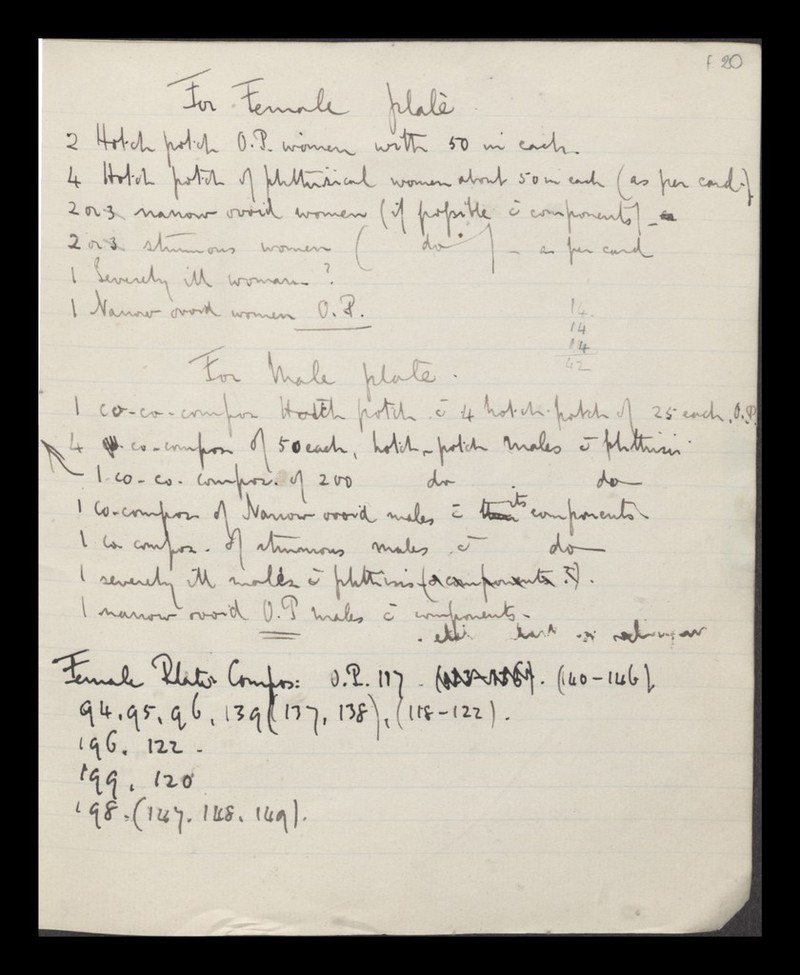 f 20
For Female plate
2 Hotch potch O.P. women with 50 in each.
4 Hotch potch of phthisical women about 50 in each (as per card.)
2 or 3 narrow ovoid women (if possible c̄ components) -
2 or 3 strumous women ( do ) - as per card
1 Severely ill woman ?
1 Narrow ovoid women O.P.
14.
14
14
42
For Male plate.
1 co-co-compos Hotch potch c̄ 4 hotch-potch of 25 each. O.P.
4 co-compos of 50 each, hotch-potch males c̄ phthisis
1 co-co. compos. of 200 do do
1 co-compos of Narrow ovoid males c̄ its components
1 co compos. of strumous males c̄ do
1 severely ill males c̄ phthisis (c̄ components ?).
1 narrow ovoid O.P males c̄ components.
Female Plate Compos: O.P. 117 . (140-146).
94, 95, 96, 139 (137, 138), (118-122).
196, 122.
199, 120
198. (147, 148, 149).